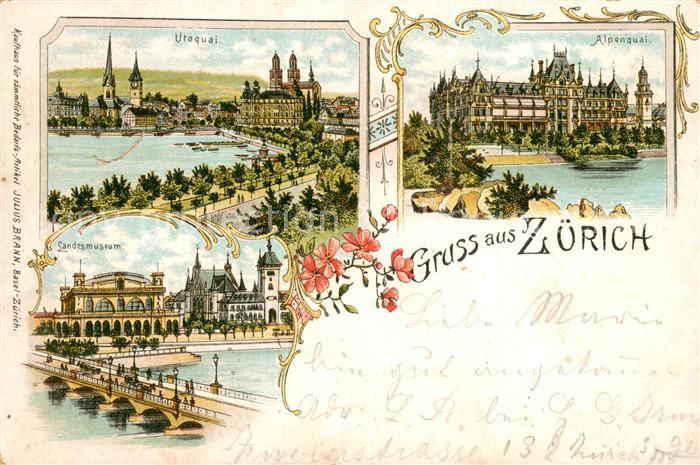 Utoquai.
Alpenquai.
Landesmuseum.
Gruss aus ZÜRICH
Kaufhaus für sämmtliche Bedarfs-Artikel JULIUS BRANN, Basel-Zürich.
Liebe Marie
bin gut angekomm-
Adr. L. R. bei
132 Zürich